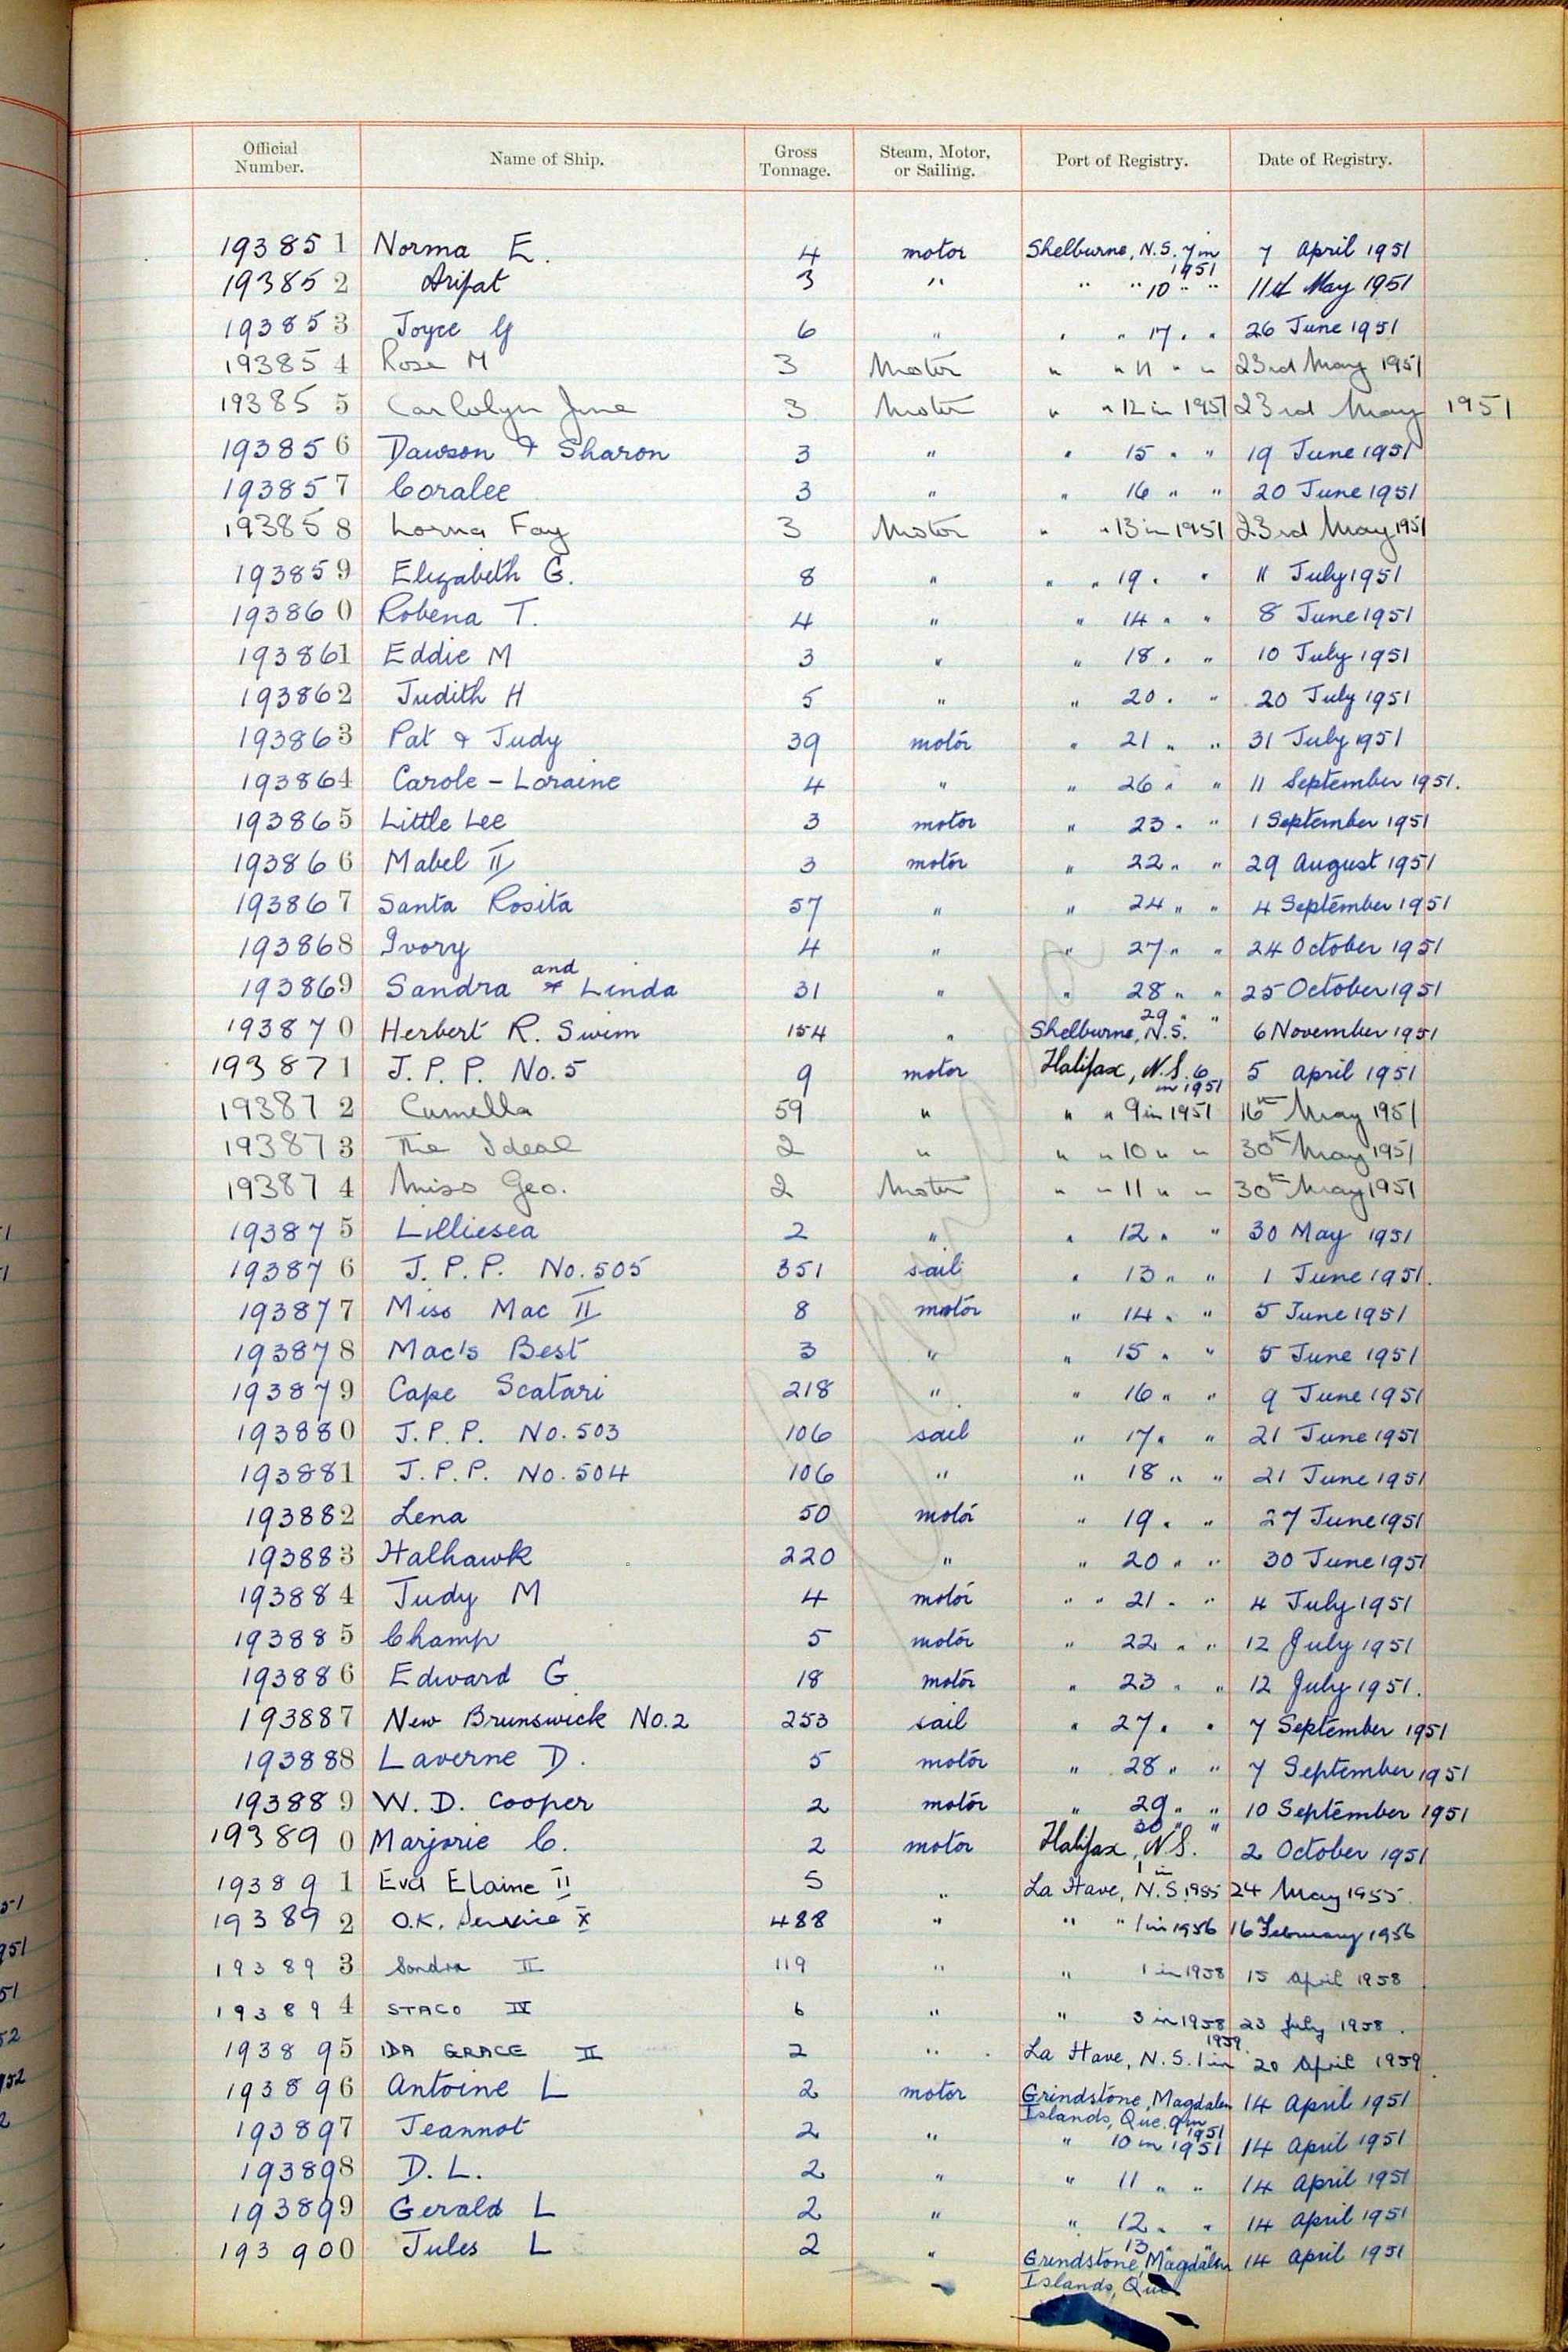 Official Number. Name of Ship. Gross Tonnage. Steam, Motor, or Sailing. Port of Registry. Date of Registry.
193851 Norma E. 4 motor Shelburne, N.S. 7 in 1951 7 April 1951
193852 3 " " " 10 " " 11th May 1951
193853 Joyce G 6 " " " 17 " " 26 June 1951
193854 Rose M 3 Motor " " 11 " " 23rd May 1951
193855 June 3 Motor " " 12 in 1951 23rd May 1951
193856 Dawson & Sharon 3 " " 15 " " 19 June 1951
193857 Coralee 3 " " 16 " " 20 June 1951
193858 Lorna Fay 3 Motor " " 13 in 1951 23rd May 1951
193859 Elizabeth G. 8 " " " 19 " " 11 July 1951
193860 Robena T. 4 " " 14 " " 8 June 1951
193861 Eddie M 3 " " 18 " " 10 July 1951
193862 Judith H 5 " " 20 " " 20 July 1951
193863 Pat & Judy 39 motor " 21 " " 31 July 1951
193864 Carole - Loraine 4 " " 26 " " 11 September 1951.
193865 Little Lee 3 motor " 23 " " 1 September 1951
193866 Mabel II 3 motor " 22 " " 29 August 1951
193867 Santa Rosita 57 " " 24 " " 4 September 1951
193868 Ivory 4 " " 27 " " 24 October 1951
193869 Sandra and Linda 31 " " 28 " " 25 October 1951
193870 Herbert R. Swim 154 " Shelburne, N.S. 29 " " 6 November 1951
193871 J. P. P. No. 5 9 motor Halifax, N.S. 6 in 1951 5 April 1951
193872 Cumella 59 " " " 9 in 1951 16th May 1951
193873 The Ideal 2 " " " 10 " " 30th May 1951
193874 Miss Geo. 2 Motor " " 11 " " 30th May 1951
193875 Lilliesea 2 " " 12 " " 30 May 1951
193876 J. P. P. No. 505 351 sail " 13 " " 1 June 1951.
193877 Miss Mac II 8 motor " 14 " " 5 June 1951
193878 Mac's Best 3 " " 15 " " 5 June 1951
193879 Cape Scatari 218 " " 16 " " 9 June 1951
193880 J. P. P. No. 503 106 sail " 17 " " 21 June 1951
193881 J. P. P. No. 504 106 " " 18 " " 21 June 1951
193882 Lena 50 motor " 19 " " 27 June 1951
193883 Halhawk 220 " " 20 " " 30 June 1951
193884 Judy M 4 motor " " 21 " " 4 July 1951
193885 Champ 5 motor " 22 " " 12 July 1951
193886 Edward G 18 motor " 23 " " 12 July 1951.
193887 New Brunswick No. 2 253 sail " 27 " " 7 September 1951
193888 Laverne D. 5 motor " 28 " " 7 September 1951
193889 W. D. Cooper 2 motor " 29 " " 10 September 1951
193890 Marjorie C. 2 motor Halifax, N.S. 30 " " 2 October 1951
193891 Eva Elaine II 5 " La Have, N.S. 1 in 1955 24 May 1955.
193892 O.K. Service X 488 " " " 1 in 1956 16 February 1956
193893 Sondra II 119 " " 1 in 1958 15 April 1958
193894 STACO IV 6 " " 3 in 1958 23 July 1958.
193895 IDA GRACE II 2 " La Have, N.S. 1 in 1959. 20 April 1959
193896 Antoine L 2 motor Grindstone, Magdalen Islands, Que. 9 in 1951 14 April 1951
193897 Jeannot 2 " " 10 in 1951 14 April 1951
193898 D. L. 2 " " 11 " " 14 April 1951
193899 Gerald L 2 " " 12 " " 14 April 1951
193900 Jules L 2 " Grindstone, Magdalen Islands, Que 13 " " 14 April 1951